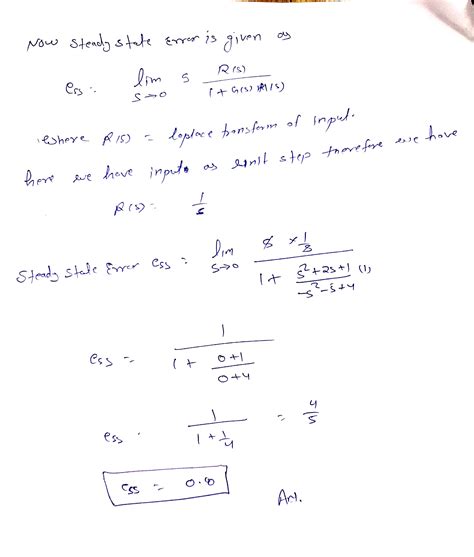 Now steady state Error is given as
ess = lim s→0 s R(s) / 1 + G(s) H(s)
where R(s) = laplace transform of input.
here we have input as unit step therefore we have
R(s) = 1/s
Steady state Error ess = lim s→0 s × 1/s / 1 + s²+2s+1 / -s²-s+4 (1)
ess = 1 / 1 + 0+1 / 0+4
ess = 1 / 1 + 1/4 = 4/5
ess = 0.80
Ans.